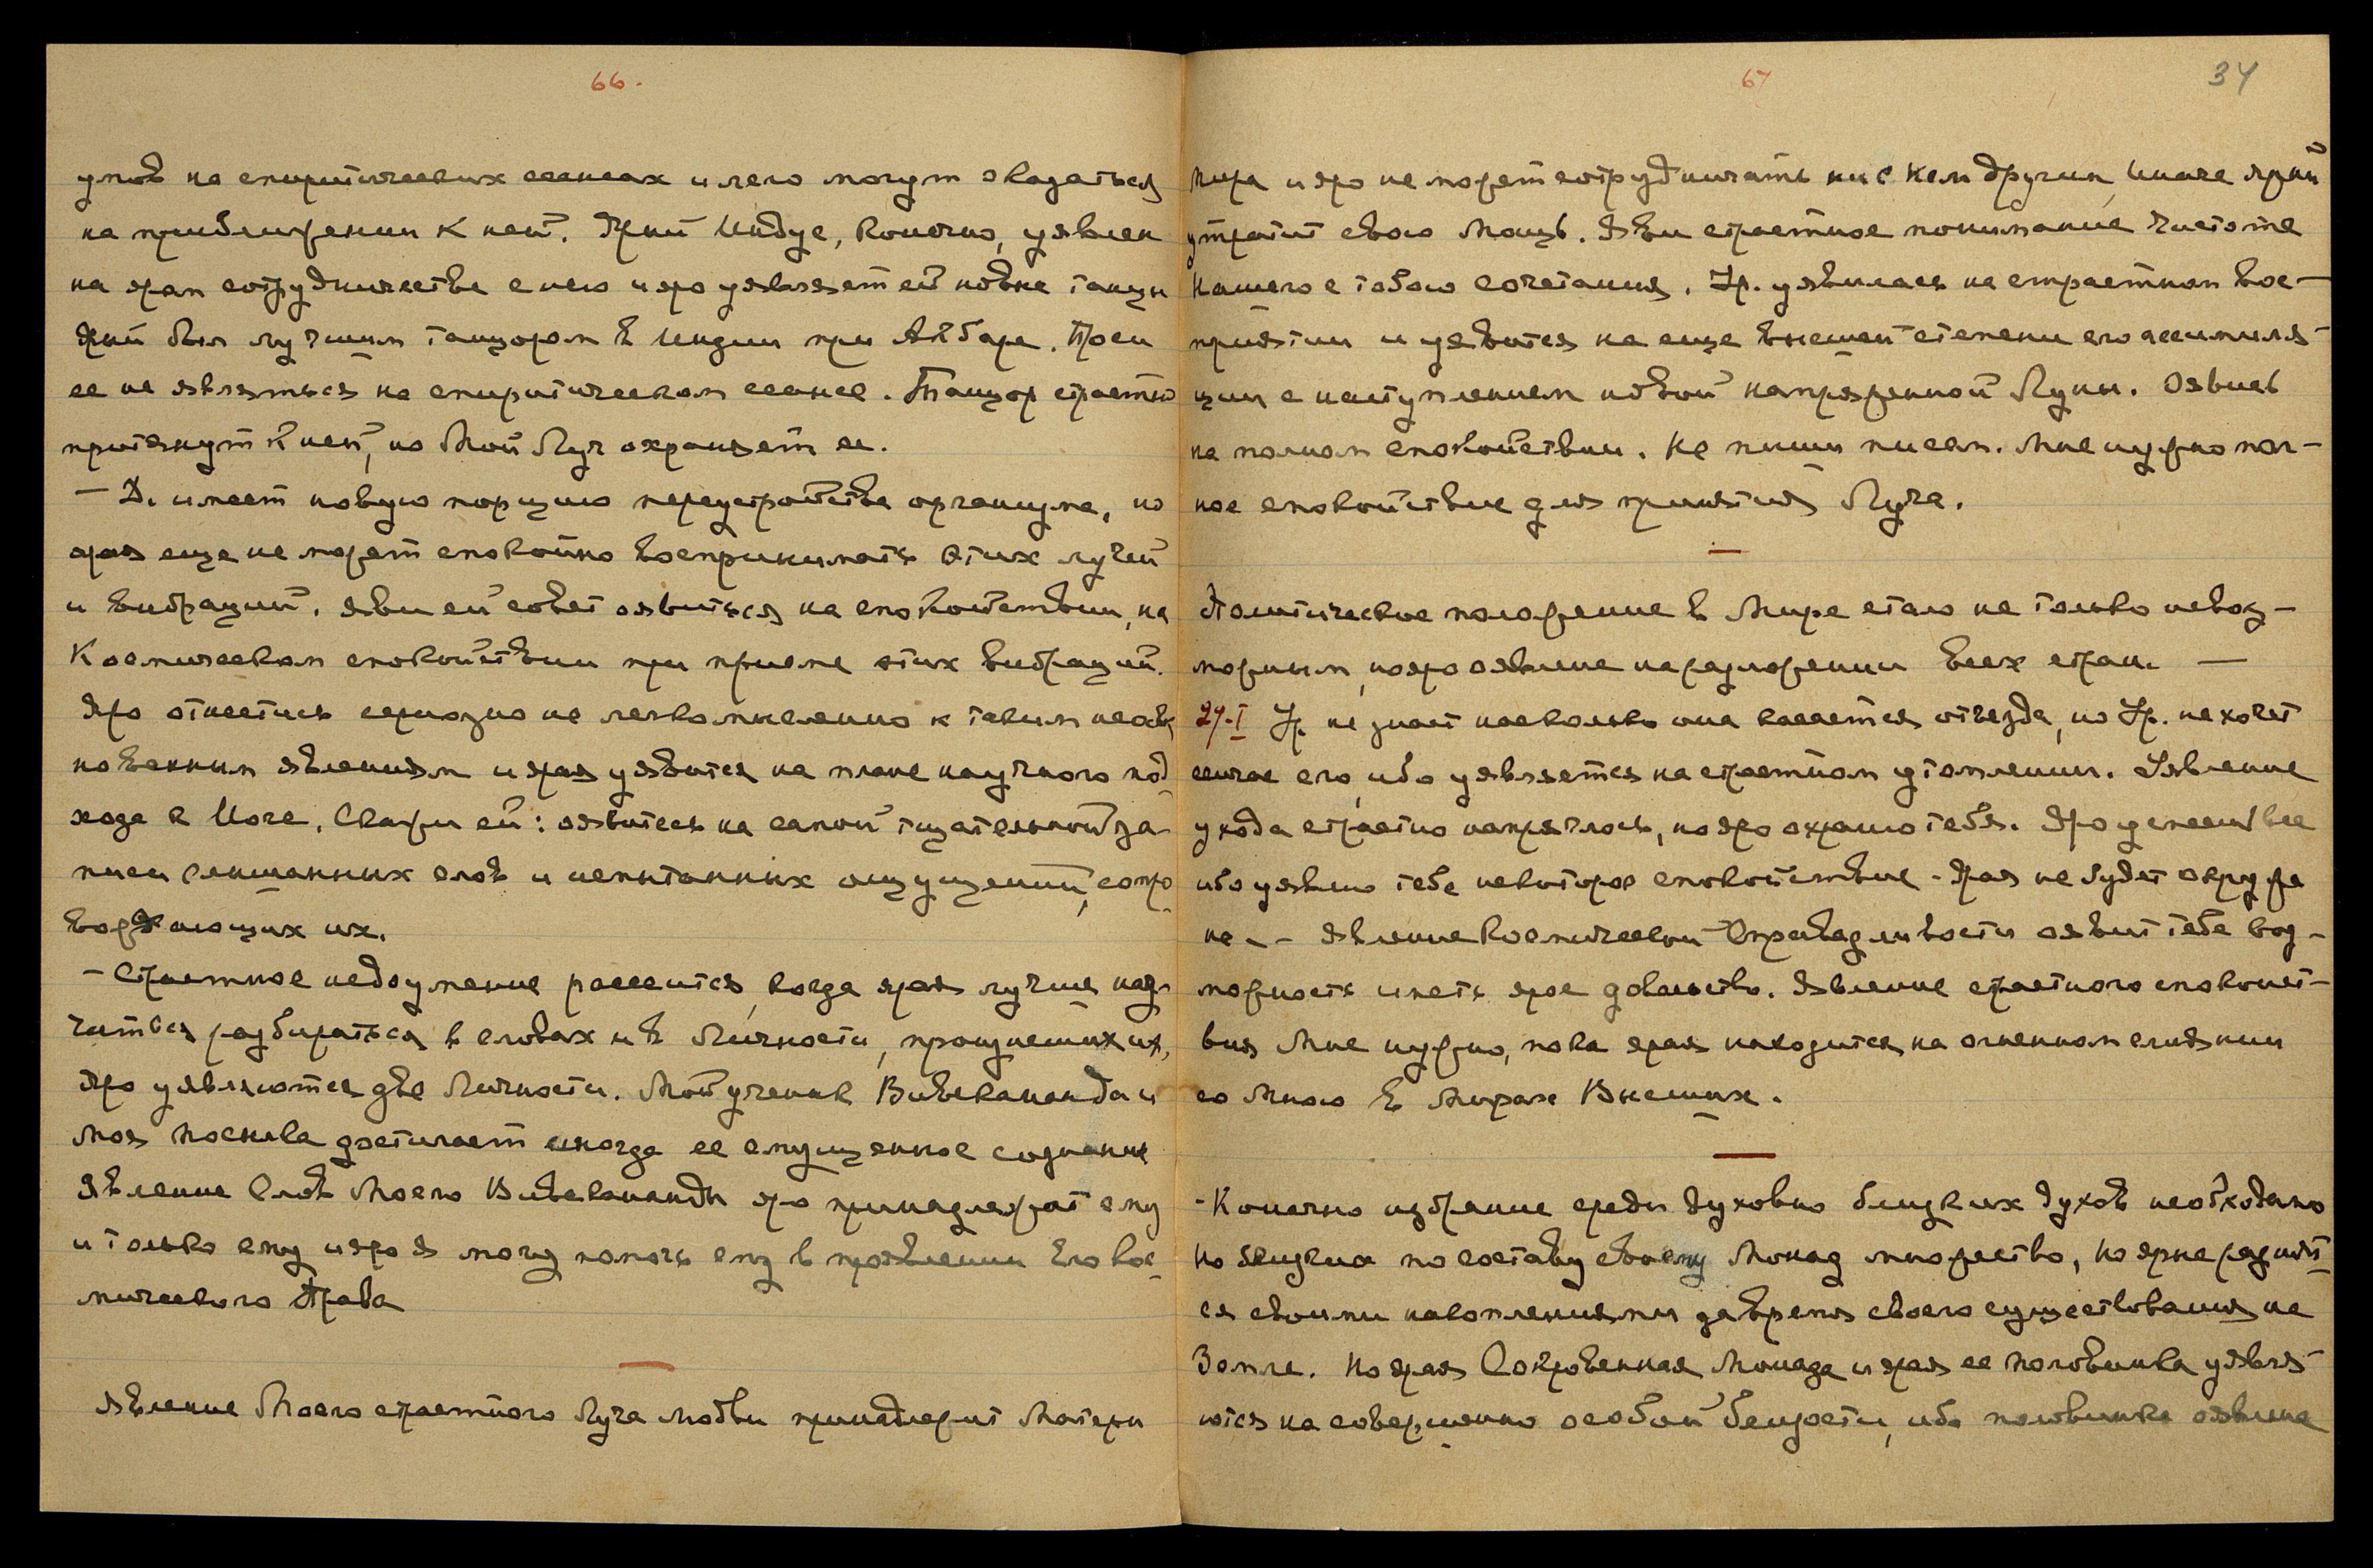 66.
умов на спиритических сеансах и легко могут оказаться
на приближении к ней. Ярый Индус, конечно, уявлен
на яром сотрудничестве с нею и яро уявляет ей новые танцы
Ярый был лучшим танцором в Индии при Акбаре. Проси
ее не являться на спиритическом сеансе. Танцор страстно
притянут к ней, но Мой Луч охраняет ее.
— Д. имеет новую порцию переустройства организма, но
ярая еще не может спокойно воспринимать этих лучей
и вибраций. Яви ей совет оявиться на спокойствии, на
Космическом спокойствии при приеме этих вибраций.
Яро отнестись серьозно не легкомысленно к таким необык
новенным явлениям и ярая уявится на плане научного под-
хода к Йоге. Скажи ей: оявитесь на самой тщательной за-
писи слышанных слов и испытанных ощущений, сопро-
вождающих их.
— Страстное недоумение рассеится, когда ярая лучше нау-
чится разбираться в словах и в личности, произнесших их,
Яро уявляются две личности. Мой ученик Вивекананда и
моя посылка достигает иногда ее смущенное сознание
Явление Слов Моего Вивекананды яро принадлежат ему
и только ему и яро я могу помочь ему в проявлении Его Кос-
мического Права
—
Явление Моего страстного Луча любви принадлежит Матери
67
34
мира и яро не может сотрудничать ни с кем другим, иначе ярый
утратит свою Мощь. Яви страстное понимание чистоте
Нашего с тобою сочетания. Ур. уявилась на страстном вос-
приятии и уявится на еще высшей степени его ассимиля-
ции с наступлением новой напряженной Луны. Оявись
на полном спокойствии. Не пиши писем. Мне нужно пол-
ное спокойствие для принятия Луча.
—
Политическое положение в Мире стало не только невоз-
можным, но яро оявлено на разложении всех стран. —
24.I Ур. не знает насколько она касается отъезда, но Ур. не хочет
сейчас его, ибо уявляется на страстном утомлении. Уявление
ухода страстно напряглось, но яро охраню тебя. Яро успеешь все
ибо уявлю тебе некоторое спокойствие – Ярая не будет окруже
на. – Явление Космической Справедливости оявит тебе воз-
можность иметь ярое довольство. Явление страстного спокойст-
вия Мне нужно, пока ярая находится на огненном слиянии
со Мною в Мирах Высших.
—
- Конечно избрание среди духовно близких духов необходимо
Но близких по составу своему Монад множество, но ярые разнят-
ся своими накоплениями за время своего существования на
Земле. Но ярая Сокровенная Монада и ярая ее половинка уявля-
ются на совершенно особой близости, ибо половинка оявлена